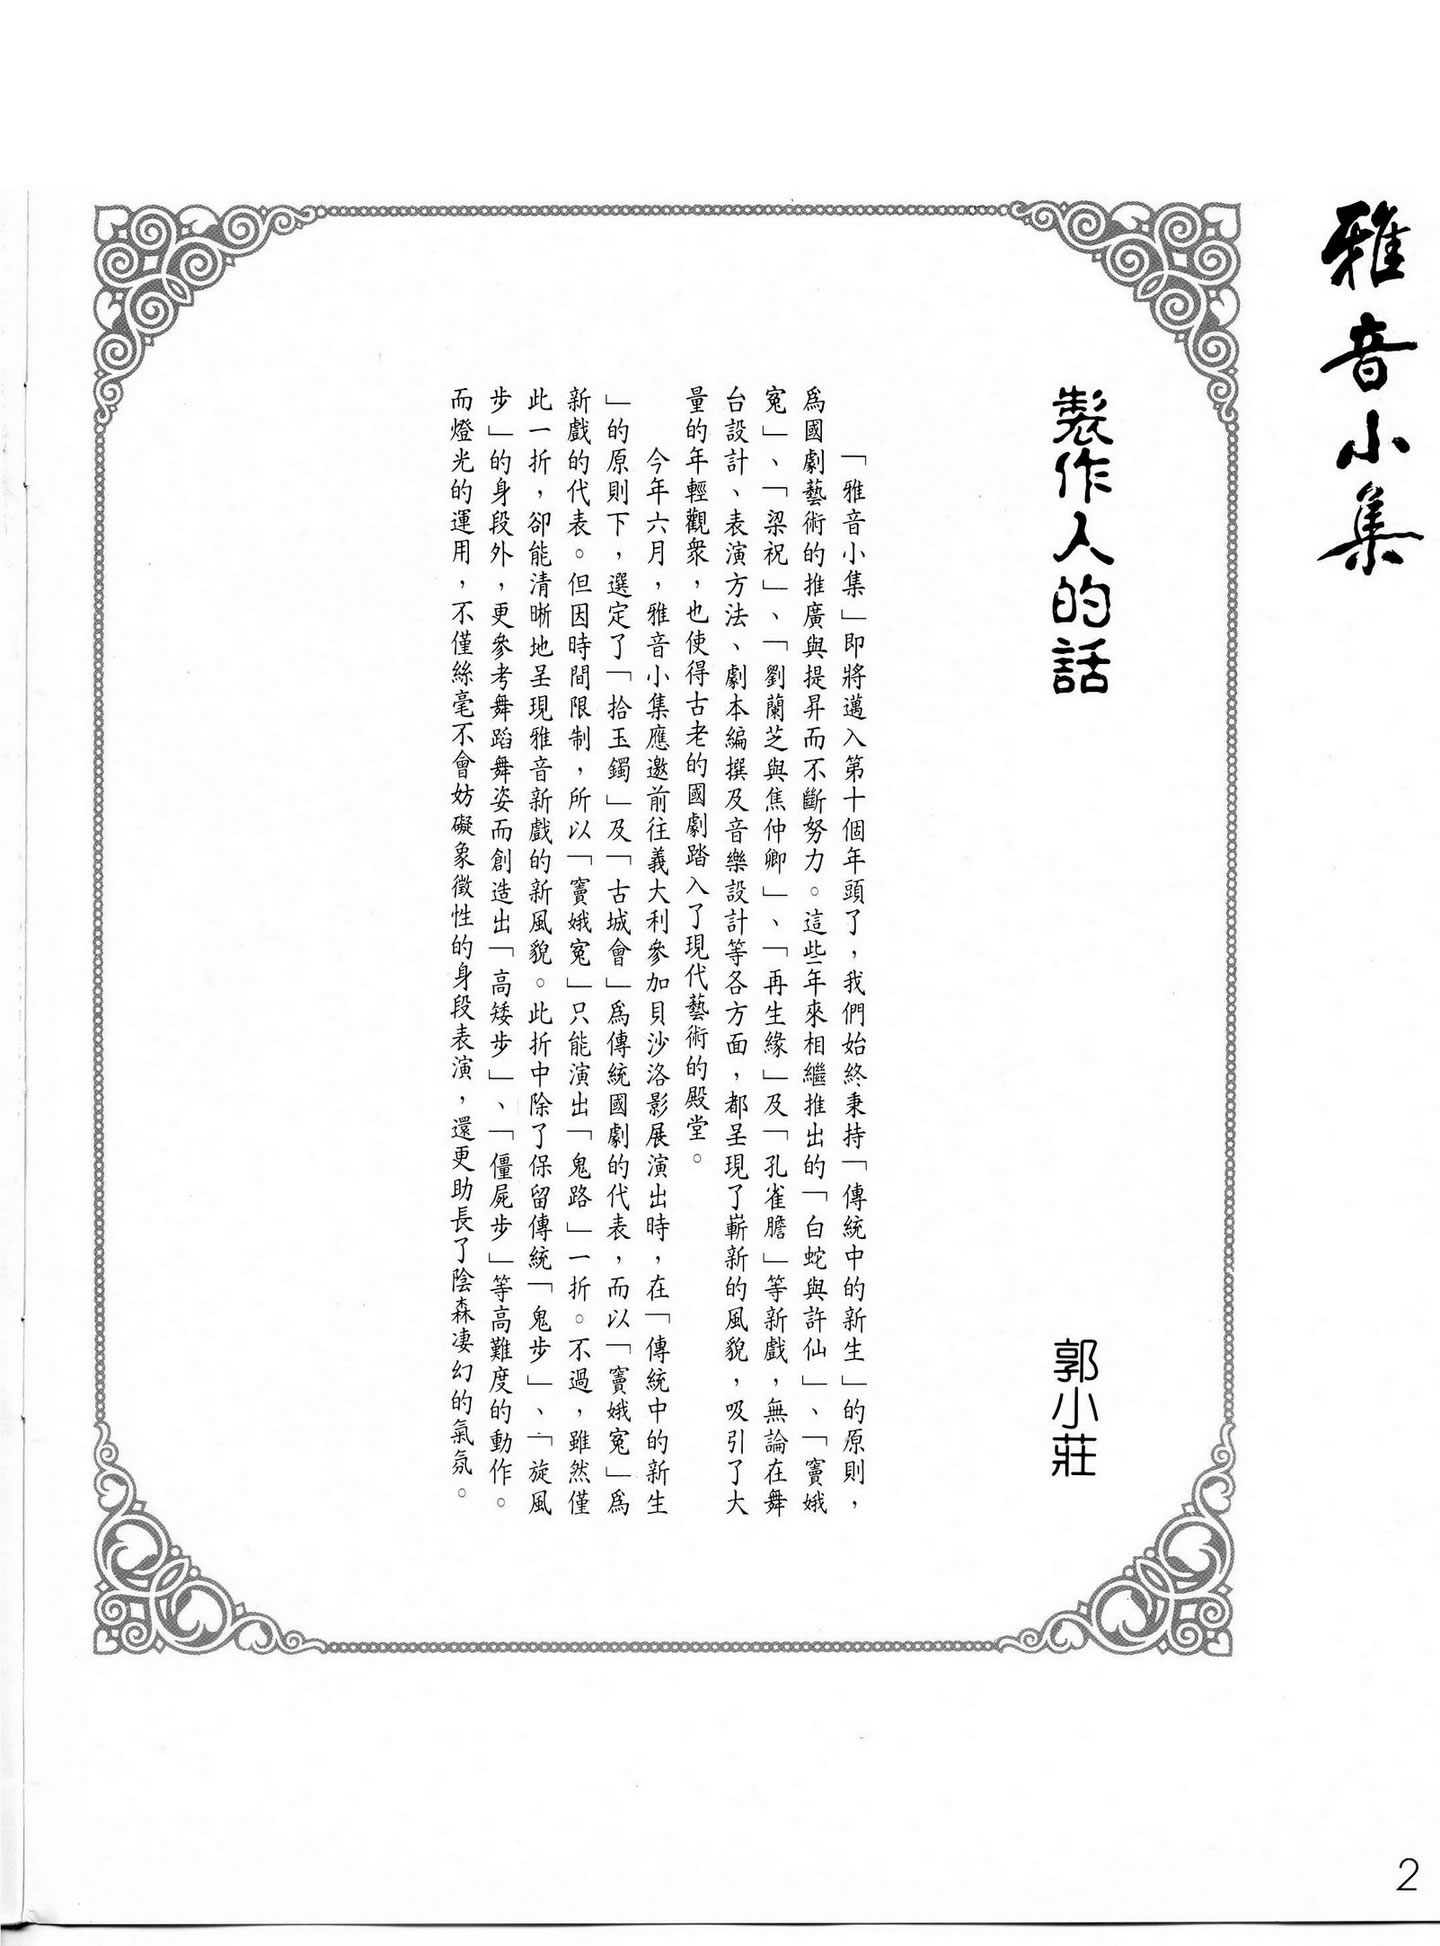 雅音小集
製作人的話
郭小莊
「雅音小集」即將邁入第十個年頭了，我們始終秉持「傳統中的新生」的原則，
爲國劇藝術的推廣與提昇而不斷努力。這些年來相繼推出的「白蛇與許仙」、「竇娥
冤」、「梁祝」、「劉蘭芝與焦仲卿」、「再生緣」及「孔雀膽」等新戲，無論在舞
台設計、表演方法、劇本編撰及音樂設計等各方面，都呈現了嶄新的風貌，吸引了大
量的年輕觀衆，也使得古老的國劇踏入了現代藝術的殿堂。
今年六月，雅音小集應邀前往義大利參加貝沙洛影展演出時，在「傳統中的新生
」的原則下，選定了「拾玉鐲」及「古城會」爲傳統國劇的代表，而以「竇娥冤」爲
新戲的代表。但因時間限制，所以「竇娥冤」只能演出「鬼路」一折。不過，雖然僅
此一折，卻能清晰地呈現雅音新戲的新風貌。此折中除了保留傳統「鬼步」、「旋風
步」的身段外，更參考舞蹈舞姿而創造出「高矮步」、「僵屍步」等高難度的動作。
而燈光的運用，不僅絲毫不會妨礙象徵性的身段表演，還更助長了陰森淒幻的氣氛。
2